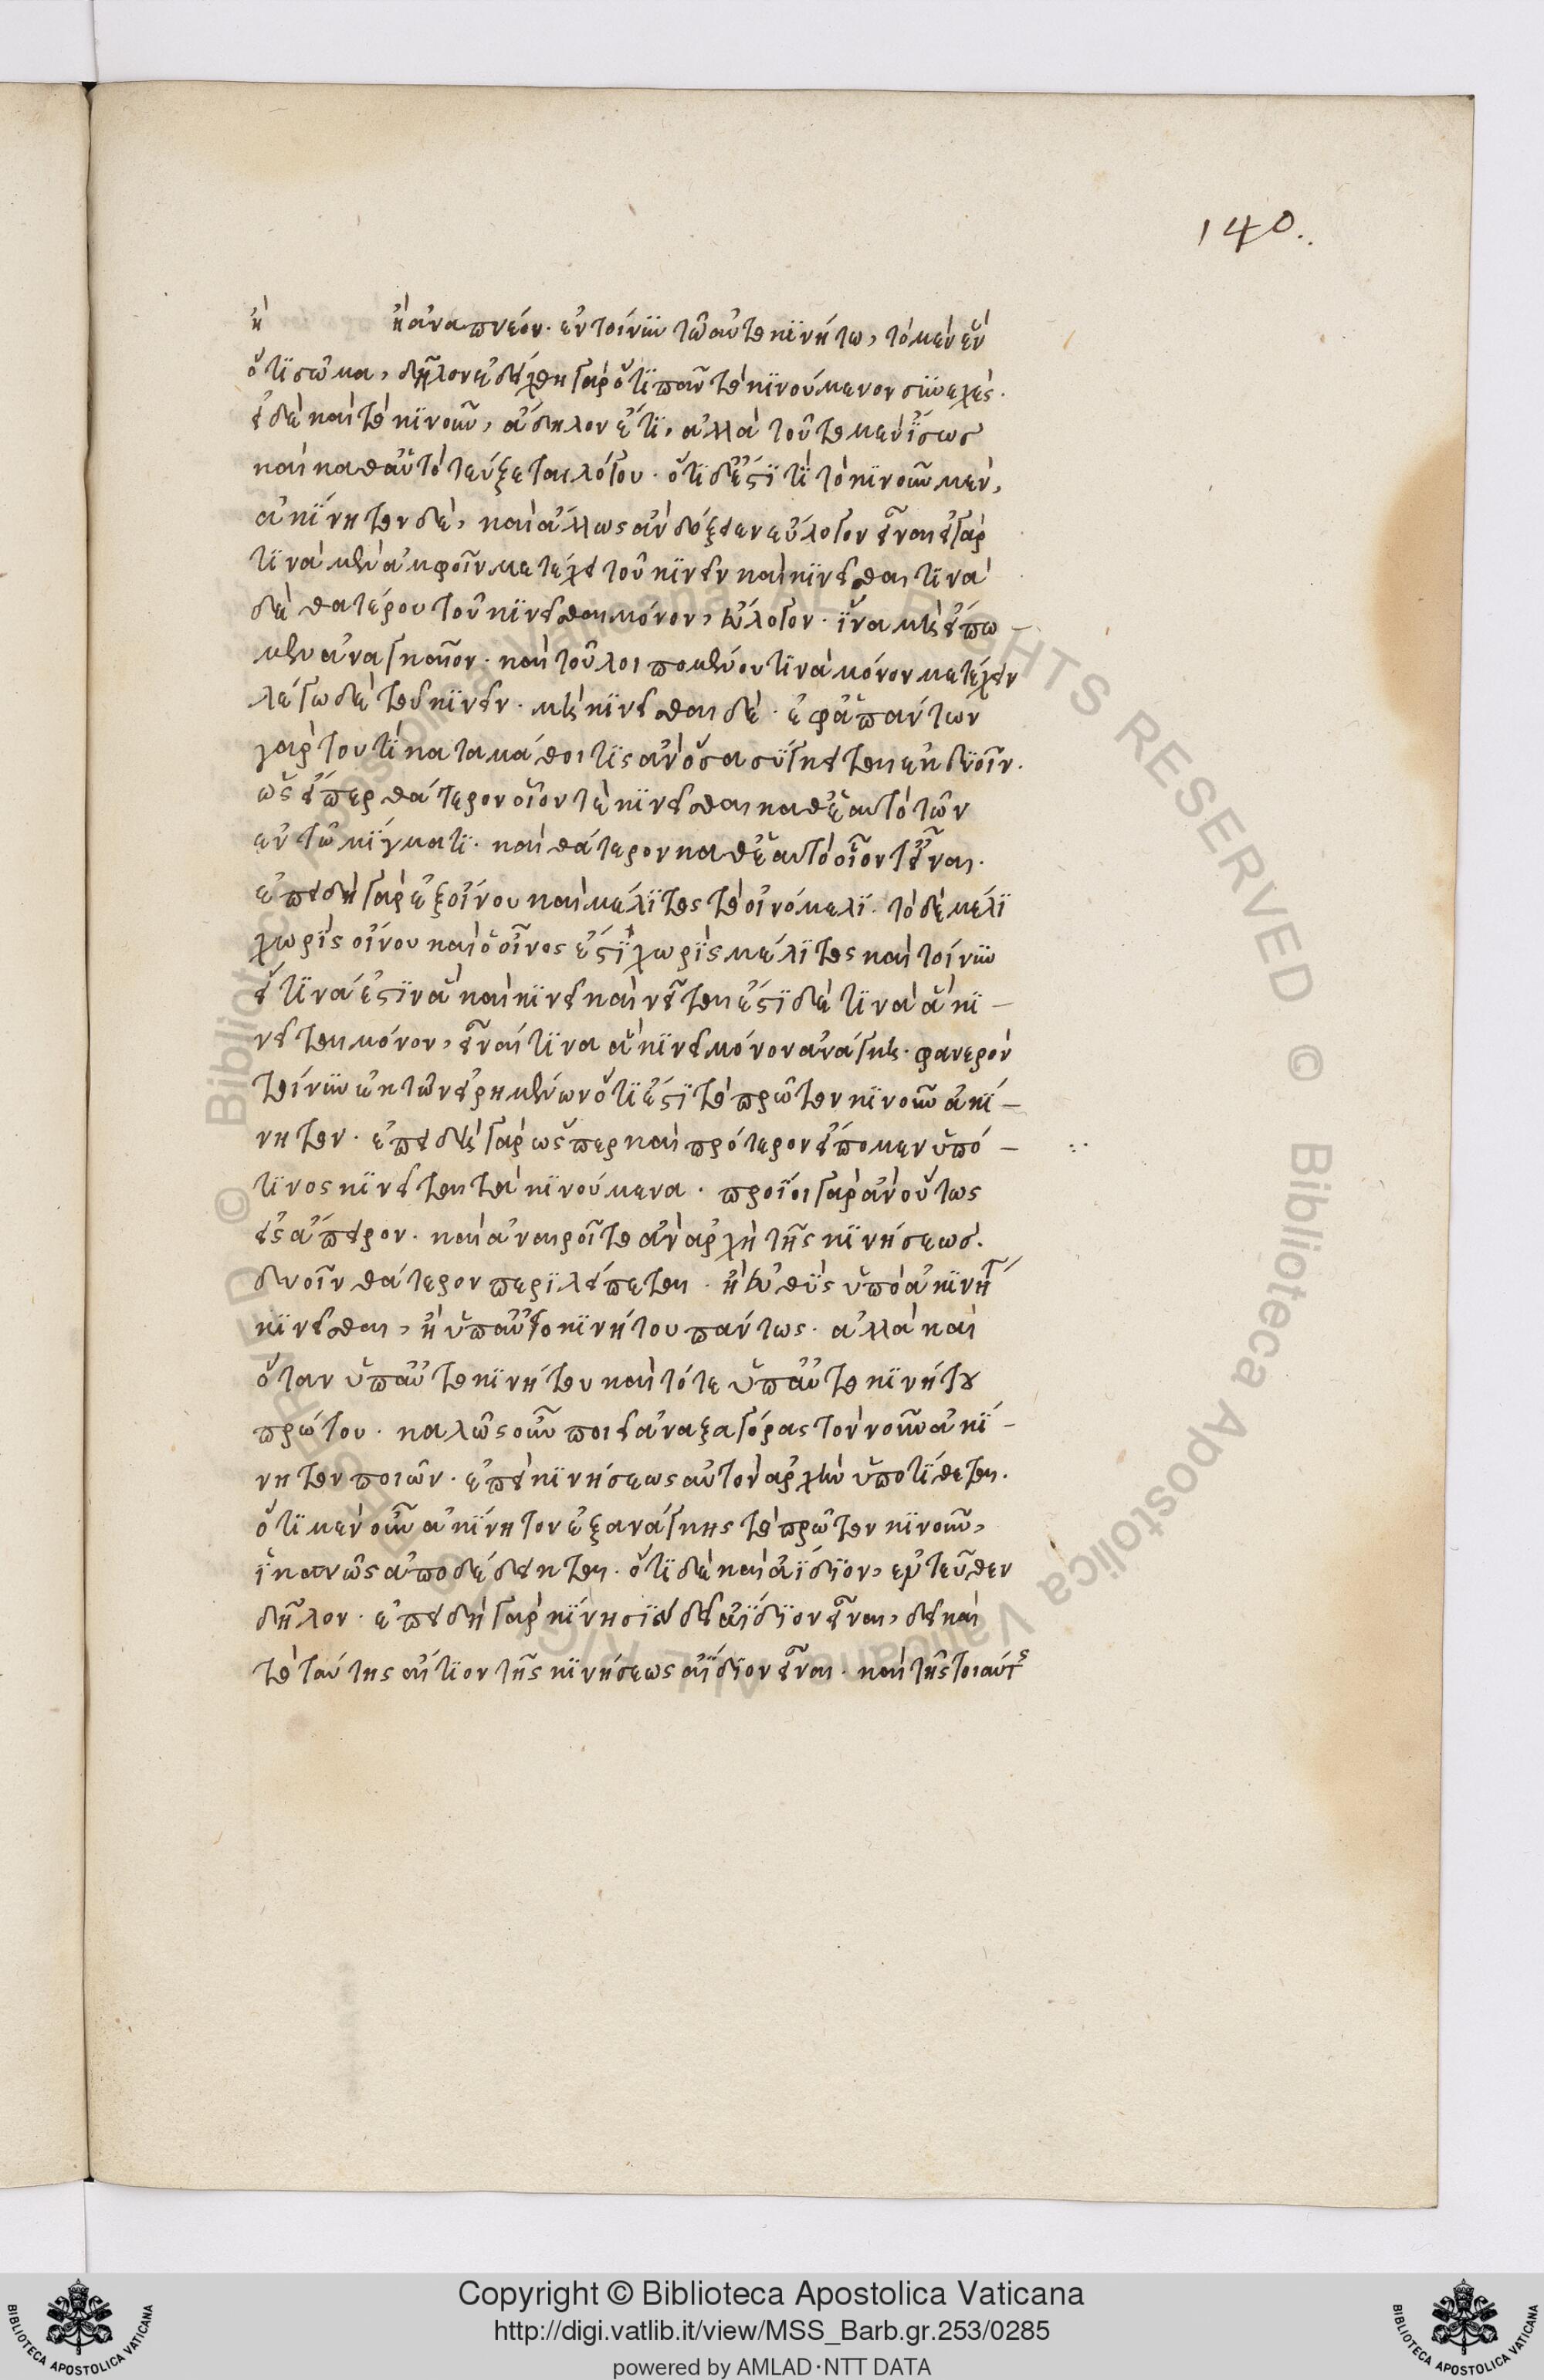 140.
ἢ ἢ ἀναπνέον. ἐν τοίνυν τῶ αὐτοκινήτω, τὸ μὲν ἓν
ὅτι σῶμα, δῆλον ἐδείχθη γὰρ ὅτι πᾶν τὸ κινούμενον συνεχές.
εἰ δὲ καὶ τὸ κινοῦν, ἄδηλον ἔτι, ἀλλὰ τοῦτο μὲν ἴσως
καὶ καθ' αὑτὸ τεύξεται λόγου. ὅτι δ' ἔστι τὶ τὸ κινοῦν μὲν,
ἀκίνητον δὲ, καὶ ἄλλως ἂν δόξειεν εὔλογον εἶναι εἰ γὰρ
τινὰ μὲν ἀμφοῖν μετέχει τοῦ κινεῖν καὶ κινεῖσθαι τινὰ
δὲ θατέρου τοῦ κινεῖσθαι μόνον, εὔλογον. ἵνα μὴ εἴπω-
μεν ἀναγκαῖον. καὶ τοῦ λοιποῦ μένον τινὰ μόνον μετέχειν
λέγω δὲ τοῦ κινεῖν. μὴ κινεῖσθαι δέ. ἐφ' ἁπάντων
γὰρ τοῦτὶ καταμάθοι τὶς ἂν ὅσα σύγκειται ἐκ δυοῖν.
ὡς εἴπερ θάτερον οἷόν τε κινεῖσθαι καθ' ἑαυτὸ τῶν
ἐν τῶ μίγματι. καὶ θάτερον καθ' ἑαυτὸ οἷόν τ' εἶναι.
ἐπειδὴ γὰρ ἐξ οἴνου καὶ μέλιτος τὸ οἰνόμελι. τὸ δὲ μέλι
χωρὶς οἴνου καὶ ὁ οἶνος ἐστὶ χωρὶς μέλιτος καὶ τοίνυν
εἰ τινά ἐστιν ἃ καὶ κινεῖ καὶ κινεῖται ἔστι δὲ τινὰ ἃ κι-
νεῖται μόνον, εἶναί τινα ἃ κινεῖ μόνον ἀνάγκη. φανερὸν
τοίνυν ἐκ τῶν εἰρημένων ὅτι ἐστὶ τὸ πρῶτον κινοῦν ἀκί-
νητον. ἐπειδὴ γὰρ ὥσπερ καὶ πρότερον εἴπομεν ὑπό-
τινος κινεῖται τὰ κινούμενα. προΐοι γὰρ ἂν οὕτως
εἰς ἄπειρον. καὶ ἀναιροῖτο ἂν ἀρχὴ τῆς κινήσεως.
δυοῖν θάτερον περιλείπεται. ἢ εὐθὺς ὑπὸ ἀκινήτ
κινεῖσθαι, ἢ ὑπ' αὐτοκινήτου πάντως. ἀλλὰ καὶ
ὅταν ὑπ' αὐτοκινήτου καὶ τότε ὑπ' αὐτοκινήτου
πρώτου. καλῶς οὖν ποιεῖ ἀναξαγόρας τὸν νοῦν ἀκί-
νητον ποιῶν. ἐπεὶ κινήσεως αὐτὸν ἀρχὴν ὑποτίθεται.
ὅτι μὲν οὖν ἀκίνητον ἐξανάγκης τὸ πρῶτον κινοῦν,
ἱκανῶς ἀποδέδεικται. ὅτι δὲ καὶ ἀΐδιον, ἐντεῦθεν
δῆλον. ἐπειδὴ γὰρ κίνησιν δεῖ ἀΐδιον εἶναι, δεῖ καὶ
τὸ ταύτης αἴτιον τῆς κινήσεως ἀΐδιον εἶναι. καὶ τῆς τοιαύτς
Copyright © Biblioteca Apostolica Vaticana
http://digi.vatlib.it/view/MSS_Barb.gr.253/0285
powered by AMLAD·NTT DATA